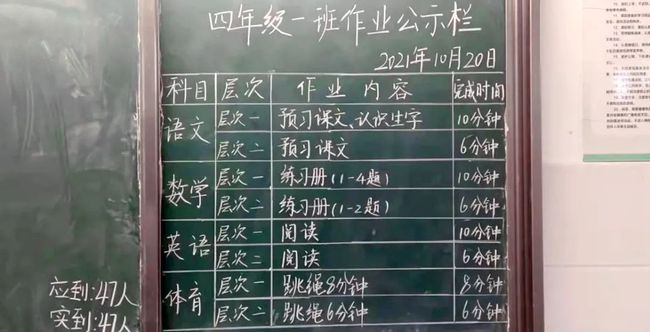 四年级一班作业公示栏
2021年10月20日
科目 层次 作业内容 完成时间
语文 层次一 预习课文、认识生字 10分钟
层次二 预习课文 6分钟
数学 层次一 练习册(1-4题) 10分钟
层次二 练习册(1-2题) 6分钟
英语 层次一 阅读 10分钟
层次二 阅读 6分钟
体育 层次一 跳绳8分钟 8分钟
层次二 跳绳6分钟 6分钟
应到:47人
实到:47人